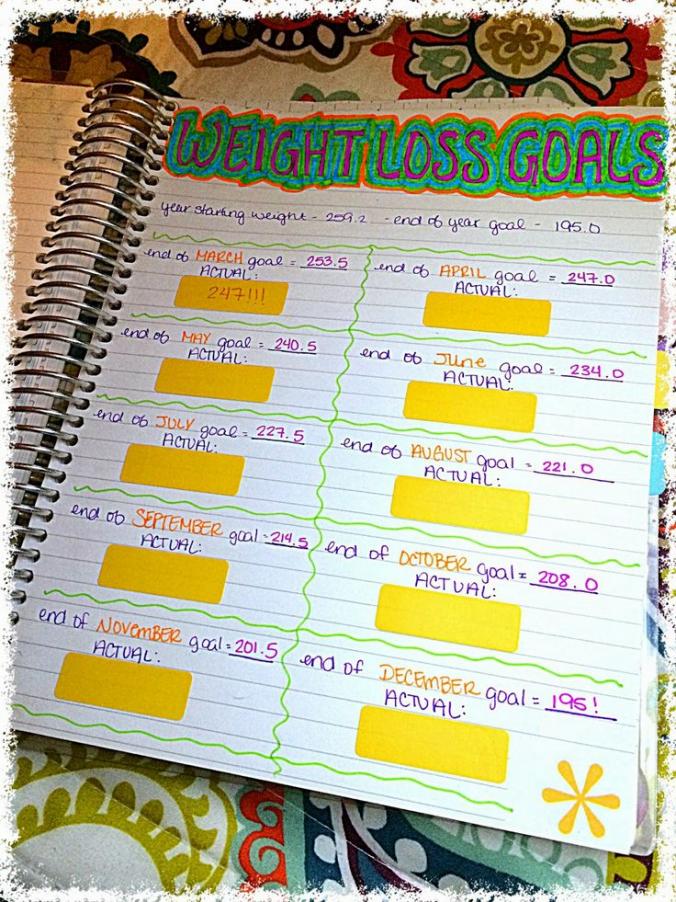 WEIGHT LOSS GOALS
year starting weight - 259.2 - end of year goal - 195.0
end of MARCH goal = 253.5
ACTUAL:
247!!!
end of APRIL goal = 247.0
ACTUAL:
end of MAY goal = 240.5
ACTUAL:
end of June goal = 234.0
ACTUAL:
end of JULY goal = 227.5
ACTUAL:
end of AUGUST goal = 221.0
ACTUAL:
end of SEPTEMBER goal = 214.5
ACTUAL:
end of OCTOBER goal = 208.0
ACTUAL:
end of NOVEMBER goal = 201.5
ACTUAL:
end of DECEMBER goal = 195!
ACTUAL: